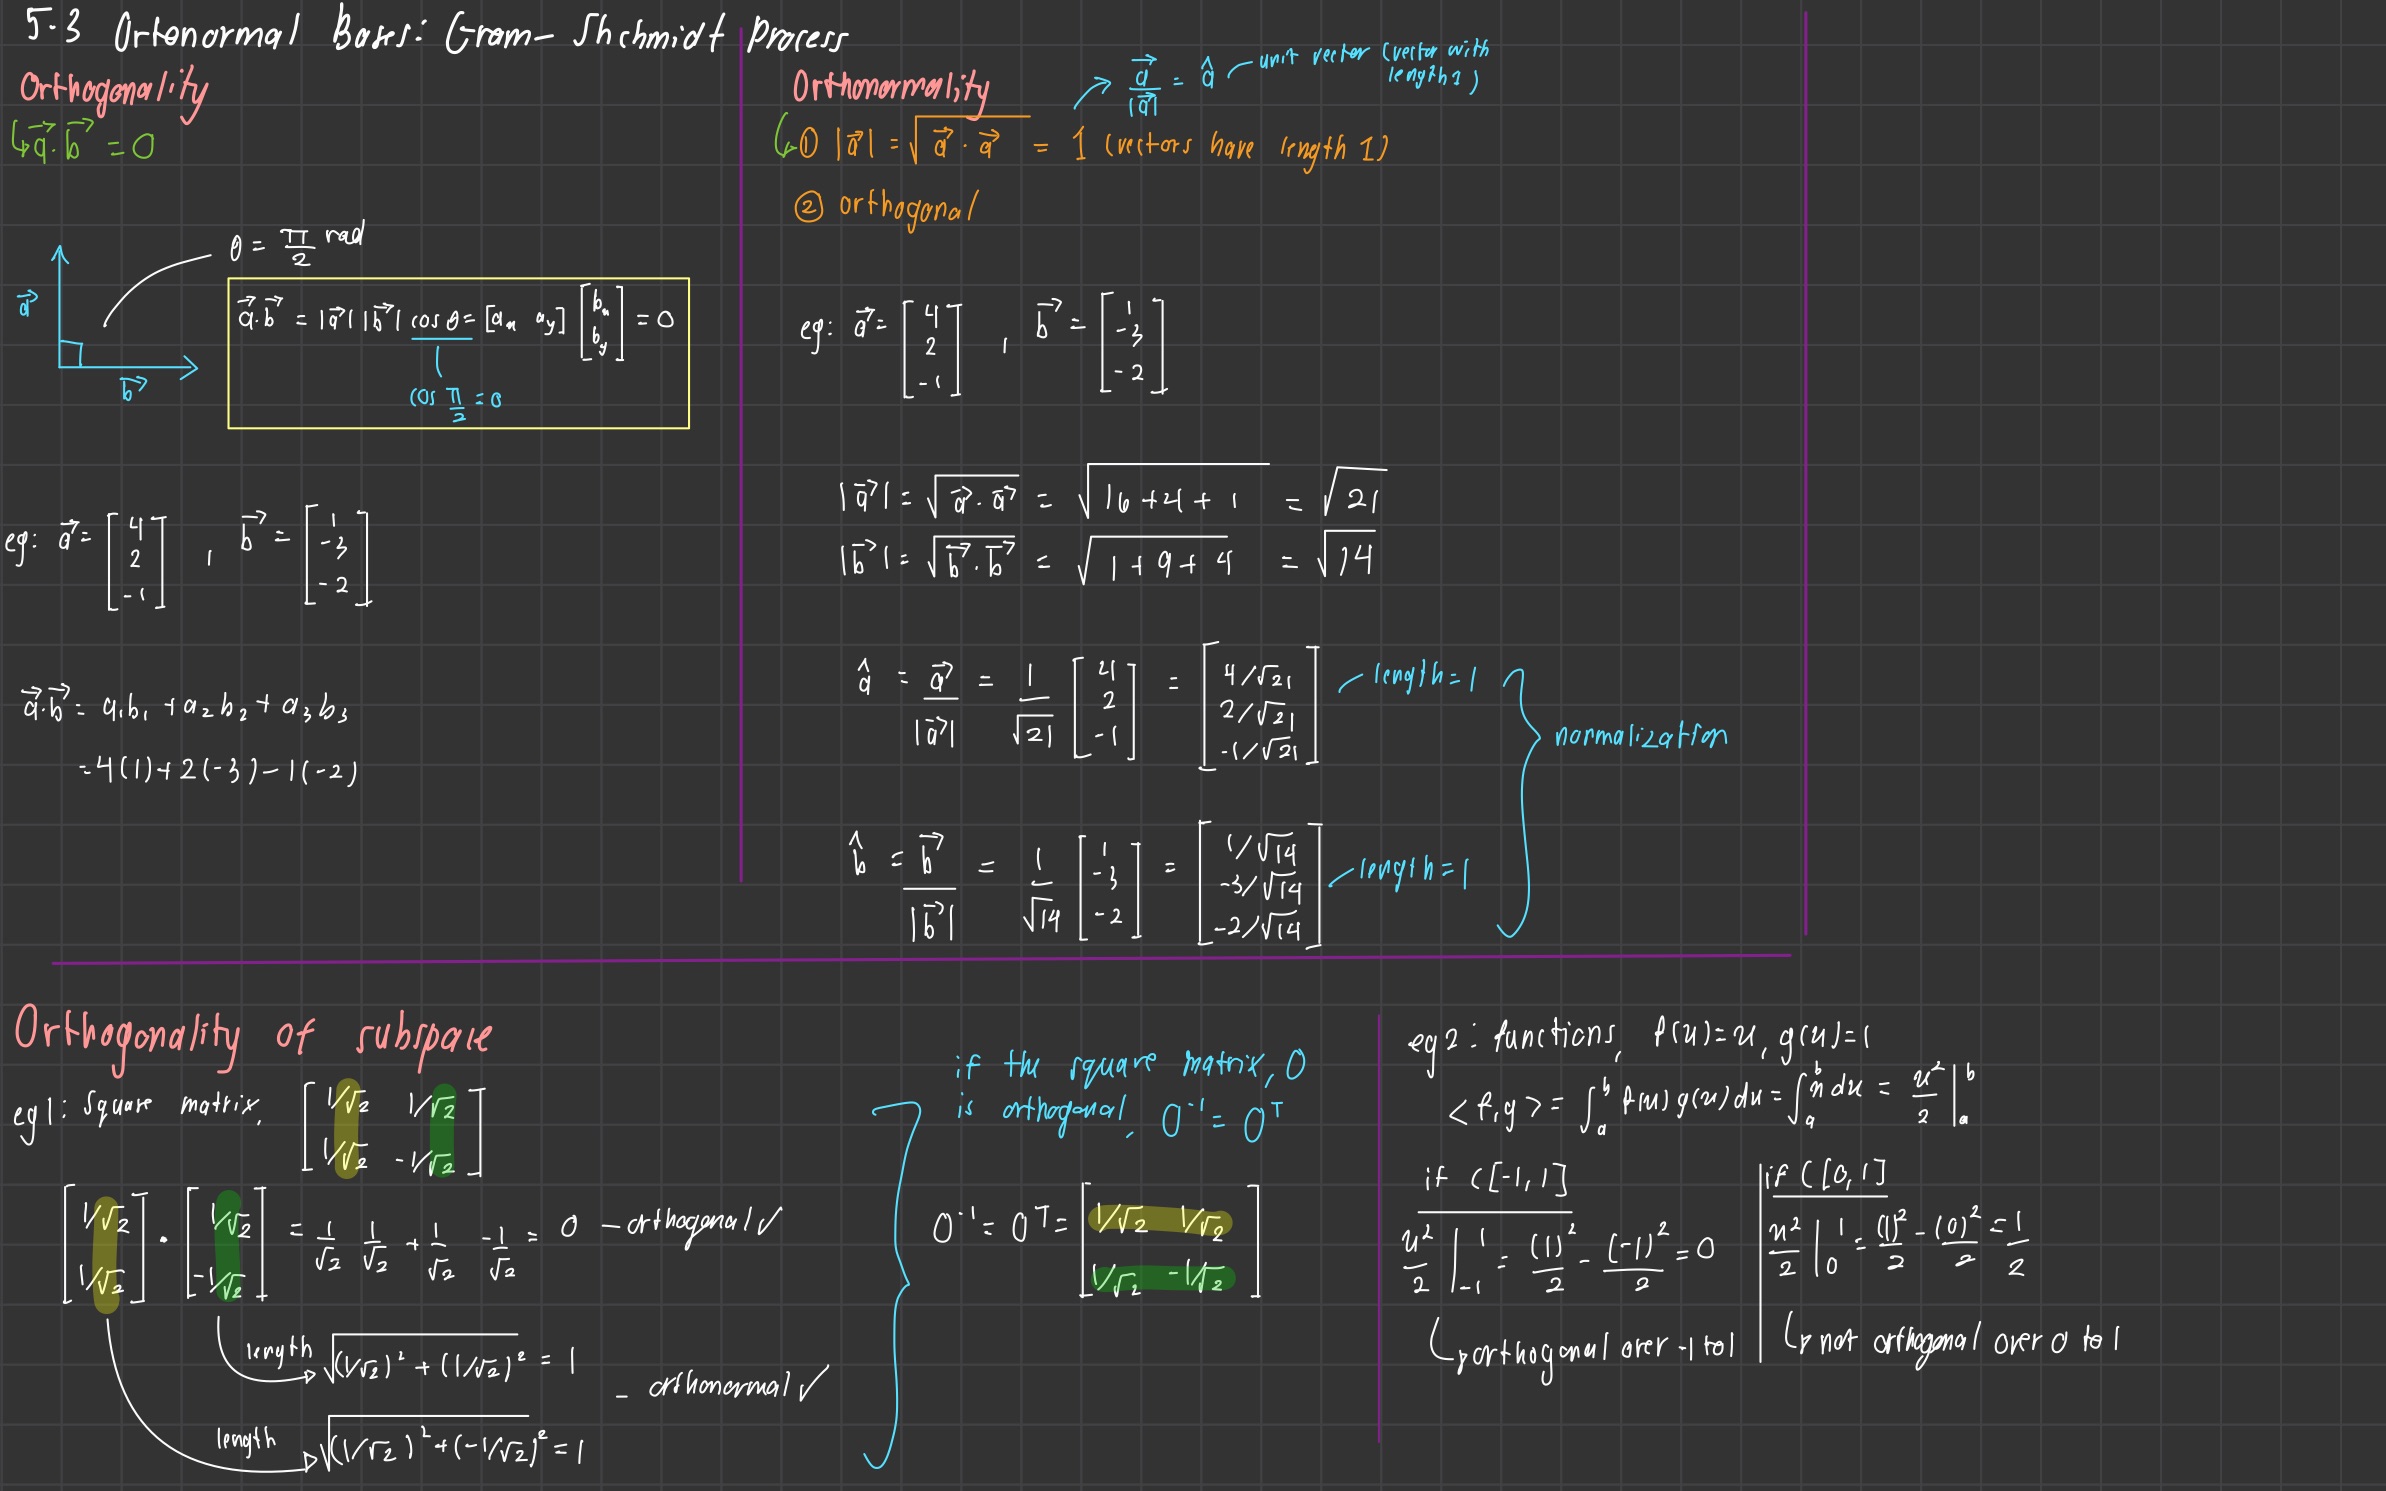 5.3 Ortonormal Bases: Gram- Shchmidt Process
Orthogonality
a⃗·b⃗ = 0
θ = π/2 rad
a⃗
b⃗
a⃗·b⃗ = |a⃗||b⃗| cos θ = [aₓ a_y] [bₓ b_y] = 0
cos π/2 = 0
eg: a⃗ = [4 2 -1] , b⃗ = [1 -3 -2]
a⃗·b⃗ = a₁b₁ + a₂b₂ + a₃b₃
= 4(1) + 2(-3) - 1(-2)
Orthonormality
a⃗/|a⃗| = â
unit vector (vector with
length 1)
① |a⃗| = √(a⃗·a⃗) = 1 (vectors have length 1)
② orthogonal
eg: a⃗ = [4 2 -1] , b⃗ = [1 -3 -2]
|a⃗| = √(a⃗·a⃗) = √(16+4+1) = √21
|b⃗| = √(b⃗·b⃗) = √(1+9+4) = √14
â = a⃗/|a⃗| = 1/√21 [4 2 -1] = [4/√21 2/√21 -1/√21] length = 1
normalization
b̂ = b⃗/|b⃗| = 1/√14 [1 -3 -2] = [1/√14 -3/√14 -2/√14] length = 1
Orthogonality of subspace
eg 1: Square matrix, [1/√2 1/√2 1/√2 -1/√2]
[1/√2 1/√2] · [1/√2 -1/√2] = 1/√2 1/√2 + 1/√2 -1/√2 = 0 - orthogonal ✓
length √((1/√2)² + (1/√2)²) = 1
- orthonormal ✓
length √((1/√2)² + (-1/√2)²) = 1
if the square matrix, O
is orthogonal, O⁻¹ = Oᵀ
O⁻¹ = Oᵀ = [1/√2 1/√2 1/√2 -1/√2]
eg 2: functions, f(x) = x, g(x) = 1
<f,g> = ∫ₐᵇ f(x) g(x) dx = ∫ₐᵇ x dx = x²/2 |ₐᵇ
if C[-1,1]
x²/2 |₋₁¹ = (1)²/2 - (-1)²/2 = 0
orthogonal over -1 to 1
if C[0,1]
x²/2 |₀¹ = (1)²/2 - (0)²/2 = 1/2
not orthogonal over 0 to 1